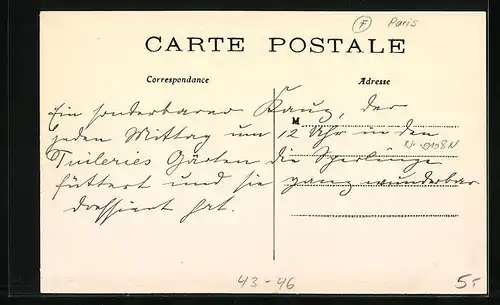 F Paris
CARTE POSTALE
Correspondance
Adresse
M
Ein sonderbarer Kauz, der
jeden Mittag um 12 Uhr in den
Tuileries Gärten die Sperlinge
füttert und sie ganz wunderbar
dressiert hat.
43-46
5.-